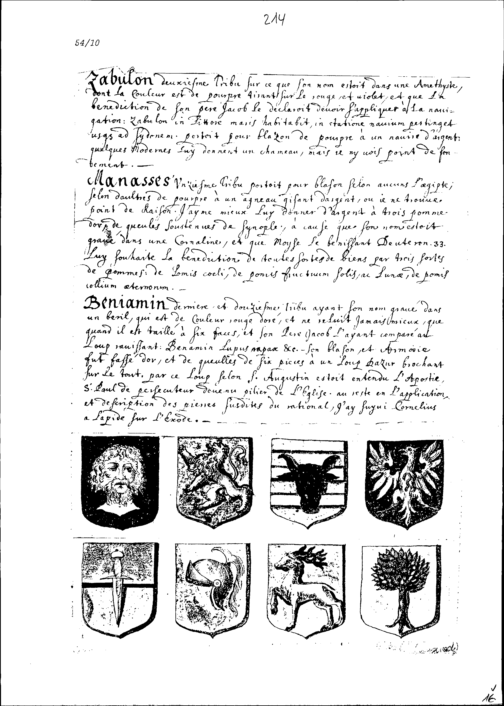 214
54/10
Zabulon deuxiesme Tribu sur ce que son nom estoit dans une Amethyste,
dont la Couleur est de pourpre tirant sur le rouge, et violet, et que La
benediction de son pere Jacob le declaroit devoir s'appliquer a La navi-
gation: Zabulon in littore maris habitabit, in statione navium pertinget
usqs ad Sydonem. portoit pour blazon de pourpre à un navire d'argent:
quelques modernes Luy donnent un chameau, mais ie ny vois point de fon
dement. —
Manassés Unziesme Tribu portoit pour blason selon aucuns l'agipte;
selon daultres de pourpre à un agneau gisant d'argent, ou ie ne trouve
point de Raison. J'ayme mieux Luy donner d'argent à trois pomme
dor, de gueules soustenues de Synople, a cause que son nom estoit
gravé dans une Cornaline, et que Moyse le benissant Deuteron. 33.
Luy souhaite la benediction de toutes sortes de biens par trois sortes
de pommes: de Pomis coeli, de pomis fructuum solis, ac Lunae, de pomis
collium aeternorum. —
Beniamin derniere et douziesme Tribu ayant son nom gravé dans
un beril, qui est de Couleur rouge doré, et ne reluit Jamais mieux, que
quand il est taillé à six faces, et son Pere Jacob l'ayant comparé au
Loup ravissant: Beniamin Lupus rapax &c. son blason, et Armoirie
fut fassé d'or, et de gueulles de six pieces à un Loup d'azur brochant
sur Le tout, par ce Loup selon S. Augustin estoit entendu L'Apostre
S. Paul de persecuteur devenu pilier de L'Eglise. au reste en l'application,
et description des pierres susdites du rational, J'ay suyvi Cornelius
a Lapide sur L'Exode. —
16